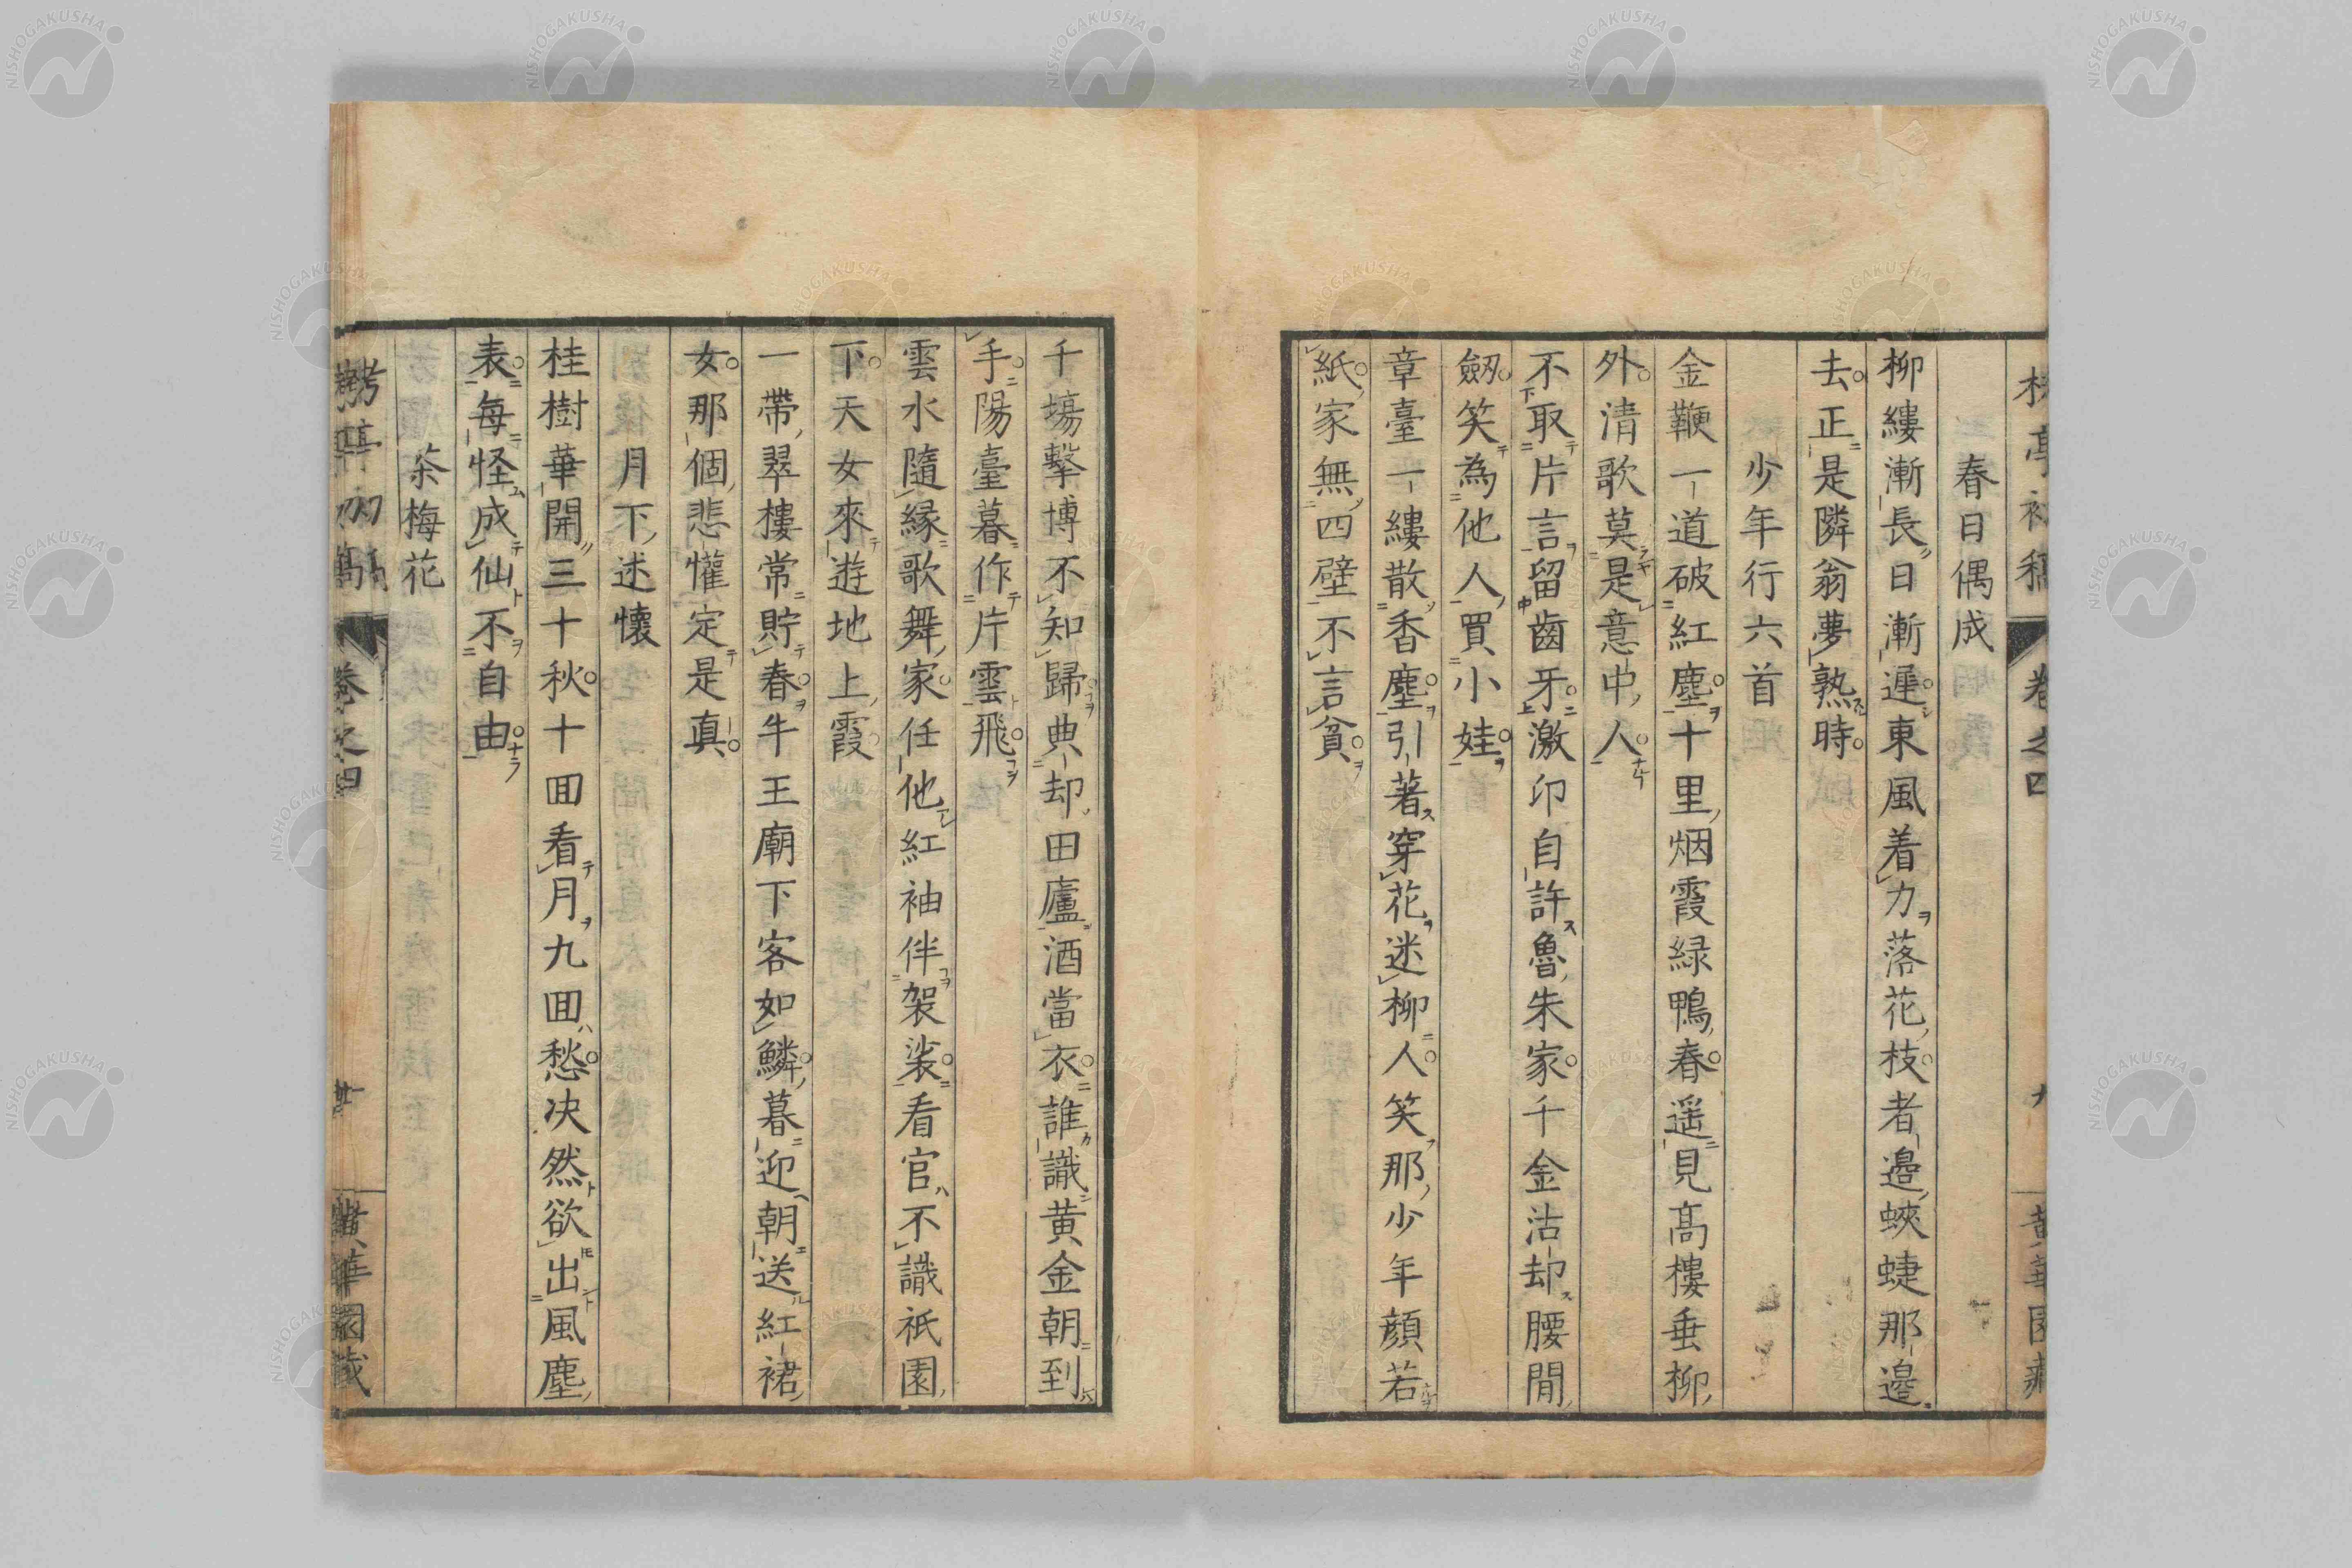 春日偶成
柳縷漸長日漸遲東風着力落花枝者邊蛺蜨那邊
去正是隣翁夢熟時
少年行六首
金鞭一道破紅塵十里烟霞緑鴨春遥見髙樓垂柳
外清歌莫是意中人
不取片言留齒牙激卬自許魯朱家千金沽却腰間
劔笑為他人買小娃
章臺一縷散香塵引著穿花迷柳人笑那少年顔若
紙家無四壁不言貧
千塲擊博不知歸典却田廬酒當衣誰識黄金朝到
手陽臺暮作片雲飛
雲水隨縁歌舞家任他紅袖伴袈裟看官不識祇園
下天女來遊地上霞
一帶翠樓常貯春牛王廟下客如鱗暮迎朝送紅裙
女那個悲懽定是真
月下述懷
桂樹華開三十秋十回看月九回愁决然欲出風塵
表每怪成仙不自由
茶梅花
卷之四
NISHOGAKUSHA